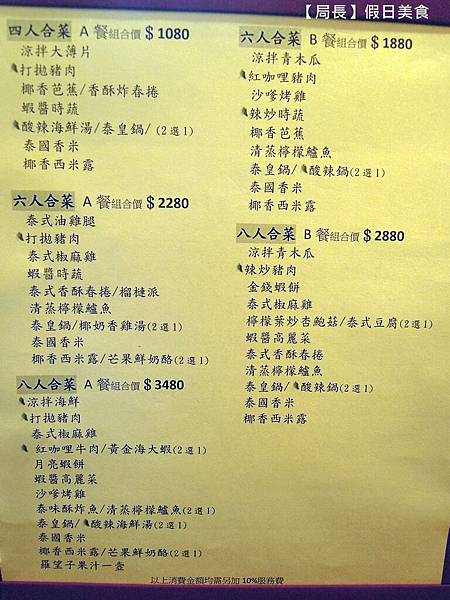 【局長】假日美食
四人合菜 A 餐組合價 $ 1080
涼拌大薄片
打拋豬肉
椰香芭蕉/香酥炸春捲
蝦醬時蔬
酸辣海鮮湯/泰皇鍋/ (2選1)
泰國香米
椰香西米露
六人合菜 A 餐組合價 $ 2280
泰式油雞腿
打拋豬肉
泰式椒麻雞
蝦醬時蔬
泰式香酥春捲/榴槤派
清蒸檸檬鱸魚
泰皇鍋/椰奶香雞湯(2選1)
泰國香米
椰香西米露/芒果鮮奶酪(2選1)
八人合菜 A 餐組合價 $ 3480
涼拌海鮮
打拋豬肉
泰式椒麻雞
紅咖哩牛肉/黃金海大蝦(2選1)
月亮蝦餅
蝦醬高麗菜
沙嗲烤雞
泰味酥炸魚/清蒸檸檬鱸魚(2選1)
泰皇鍋/酸辣海鮮湯(2選1)
泰國香米
椰香西米露/芒果鮮奶酪(2選1)
羅望子果汁一壺
六人合菜 B 餐組合價 $ 1880
涼拌青木瓜
紅咖哩豬肉
沙嗲烤雞
辣炒時蔬
椰香芭蕉
清蒸檸檬鱸魚
泰皇鍋/酸辣鍋(2選1)
泰國香米
椰香西米露
八人合菜 B 餐組合價 $ 2880
涼拌青木瓜
辣炒豬肉
金錢蝦餅
泰式椒麻雞
檸檬葉炒杏鮑菇/泰式豆腐(2選1)
蝦醬高麗菜
泰式香酥春捲
清蒸檸檬鱸魚
泰皇鍋/酸辣鍋(2選1)
泰國香米
椰香西米露
以上消費金額均需另加 10%服務費